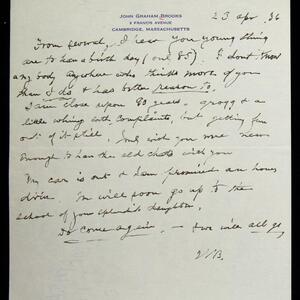 JOHN GRAHAM BROOKS
8 FRANCIS AVENUE
CAMBRIDGE, MASSACHUSETTS
23 apr. 36
From several, I hear you young thing
are to have a birth day (only 85). I don't know
any body anywhere who thinks more of you
than I do & has better reason to.
I am close upon 90 years. groggy & a
little whing with complaints, but getting fun
out of it still. And wish you were near
enough to have the old chats with you
My car is out & I am promised an hours
drive. We will soon go up to the
school of your splendid daughter.
Do come again. — & we will all go.
JGB.